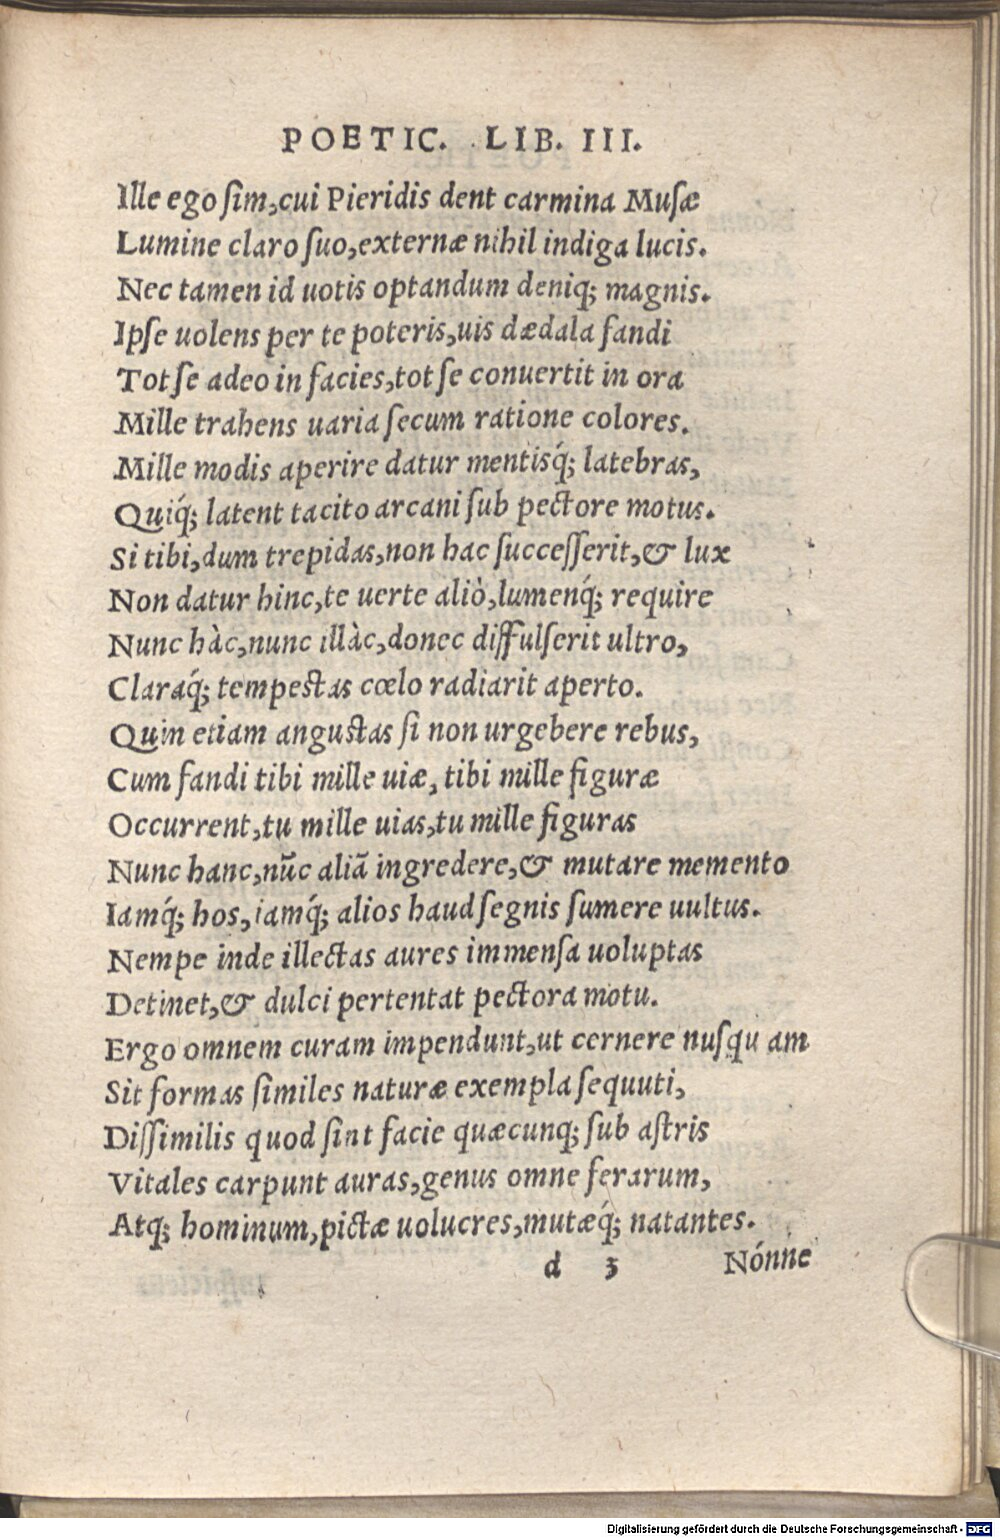 POETIC. LIB. III.
Ille ego ſim,cui Pieridis dent carmina Muſæ
Lumine claro ſuo,externæ nihil indiga lucis.
Nec tamen id uotis optandum deniq; magnis.
Ipſe uolens per te poteris,uis dædala fandi
Tot ſe adeo in facies,tot ſe conuertit in ora
Mille trahens uaria ſecum ratione colores.
Mille modis aperire datur mentisq́; latebras,
Quiq́; latent tacito arcani ſub pectore motus.
Si tibi,dum trepidas,non hac ſucceſſerit,& lux
Non datur hinc,te uerte aliò,lumenq́; require
Nunc hàc,nunc illàc,donec diffulſerit ultro,
Claraq́; tempestas cœlo radiarit aperto.
Quin etiam angustas ſi non urgebere rebus,
Cum fandi tibi mille uiæ, tibi mille figuræ
Occurrent,tu mille uias,tu mille figuras
Nunc hanc,nūc aliā ingredere,& mutare memento
Iamq́; hos,iamq́; alios haud ſegnis ſumere uultus.
Nempe inde illectas aures immenſa uoluptas
Detinet,& dulci pertentat pectora motu.
Ergo omnem curam impendunt,ut cernere nuſqu am
Sit formas ſimiles naturæ exempla ſequuti,
Diſſimilis quod ſint facie quæcunq; ſub aſtris
Vitales carpunt auras,genus omne ferarum,
Atq; hominum,pictæ uolucres,mutæq́; natantes.
d 3 Nónne
Digitalisierung gefördert durch die Deutsche Forschungsgemeinschaft - DFG